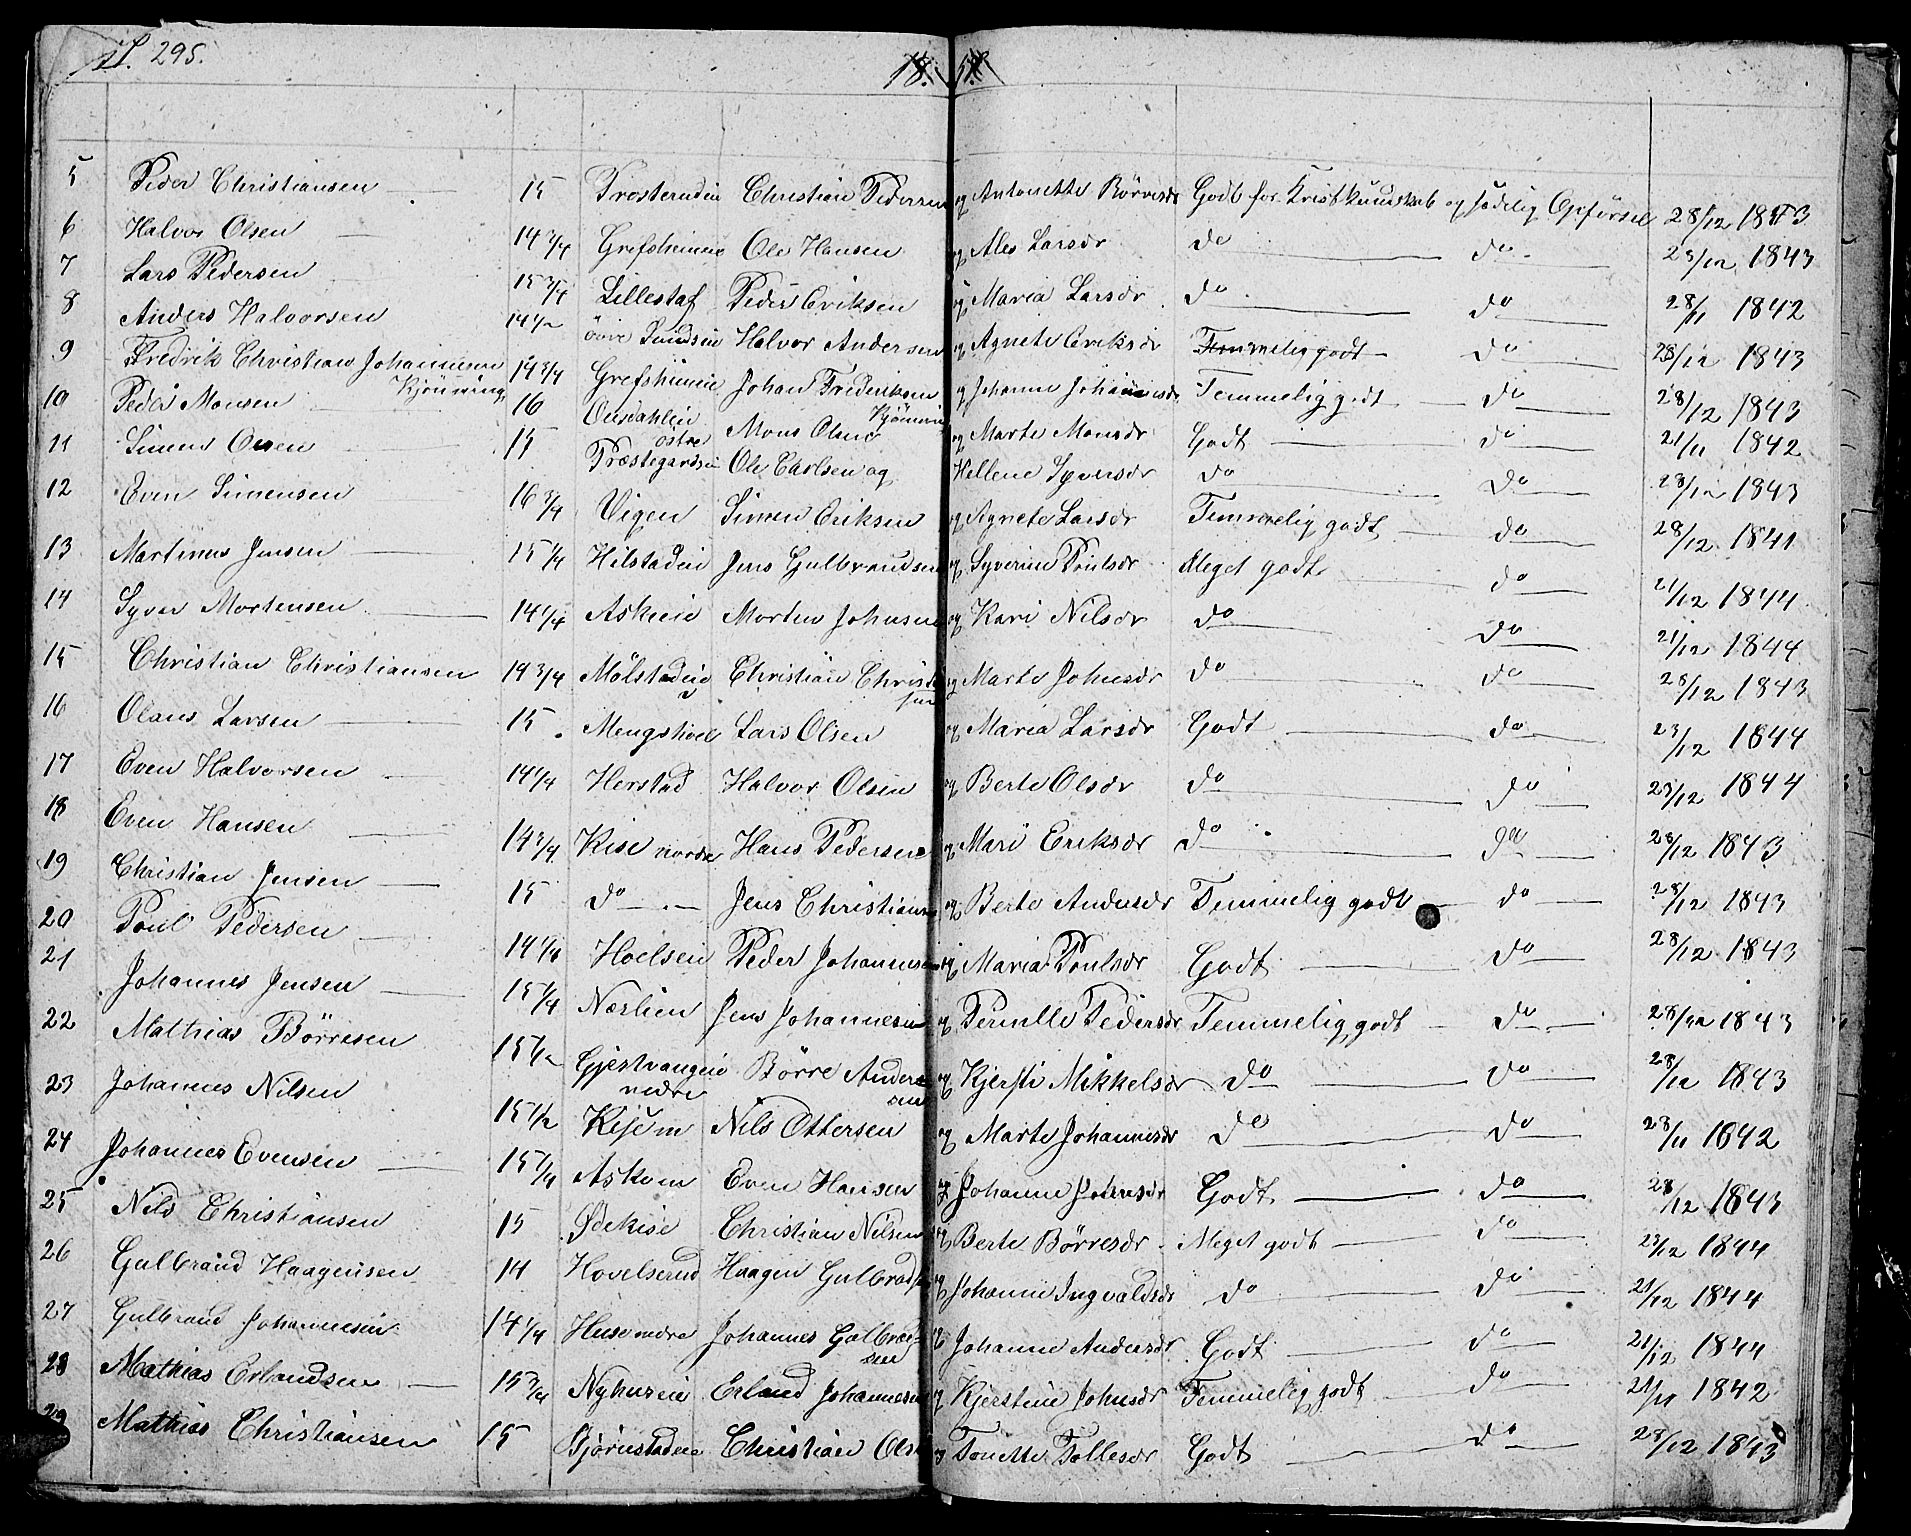 295.
5 Peder Christiansen 15 Christian Pedersen og Antonette Börresdr Godt for Kristkundskab og sødelig Opförsel 28/12 1843
6 Halvor Olsen 14 3/4 Grefsheimeie Ole Hansen og Ales Larsdr do do 23/12 1843
7 Lars Pedersen 15 3/4 Lillestaf Peder Eriksen og Maria Larsdr do do 28/11 1842
8 Anders Halvorsen 14 1/2 Halvor Andersen og Agnete Eriksdr Temmelig godt do 28/12 1843
9 Fredrik Christian Johannesen Kjönning 14 3/4 Grefsheimeie Johan Frederiksen Kjönning og Johanne Johannesdr Temmelig godt do 28/12 1843
10 Peder Monsen 16 østre Mons Olsen og Marte Monsdr Godt do 21/11 1842
11 Simen Olsen 15 Præstegardseie Ole Carlsen og Hellene Syversdr do do 28/12 1843
12 Even Simensen 16 3/4 Vigen Simen Eriksen og Agnete Larsdr Temmelig godt do 28/12 1841
13 Martinus Jensen 15 1/4 Hilstadeie Jens Gulbrandsen og Syverine Poulsdr Meget godt do 21/12 1844
14 Syver Mortensen 14 1/4 Askeie Morten Johnsen og Kari Nilsdr do do 21/12 1844
15 Christian Christiansen 14 3/4 Mölstadeie Christian Christiansen og Marte Johnsdr do do 28/12 1843
16 Olaus Larsen 15 Mengshoel Lars Olsen og Maria Larsdr Godt do 23/12 1844
17 Even Halvorsen 14 1/4 Herstad Halvor Olsen og Berte Olsdr do do 23/12 1844
18 Even Hansen 14 3/4 Kise nordre Hans Pedersen og Mari Eriksdr do do 28/12 1843
19 Christian Jensen 15 do Jens Christiansen og Berte Andersdr Temmelig godt do 28/12 1843
20 Poul Pedersen 14 1/4 Hoelseie Peder Johannesen og Maria Poulsdr Godt do 28/12 1843
21 Johannes Jensen 15 1/4 Næslien Jens Johannesen og Pernille Pedersdr Temmelig godt do 28/12 1843
22 Mathias Börresen 15 1/2 Gjestvangeie nedre Börre Andersen og Kjersti Mikkelsdr do do 28/12 1843
23 Johannes Nilsen 15 1/2 Nils Ottersen og Marte Johannesdr do do 28/11 1842
24 Johannes Evensen 15 1/4 Askom Even Hansen og Johanne Johnsdr Godt do 28/12 1843
25 Nils Christiansen 15 Ødekise Christian Nilsen og Berte Börresdr Meget godt do 23/12 1844
26 Gulbrand Haagensen 14 Hovelsrud Haagen Gulbrandsen og Johanne Ingvaldsdr do do 21/12 1844
27 Gulbrand Johannesen 14 1/4 Huse nedre Johannes Gulbrandsen og Johanne Andersdr Godt do 21/12 1844
28 Mathias Erlandsen 15 3/4 Nyhuseie Erland Johannesen og Kjerstine Johnsdr Temmelig godt do 21/11 1842
29 Mathias Christiansen 15 Bjørnstadeie Christian Olsen og Tonette Tollesdr Godt do 28/12 1843